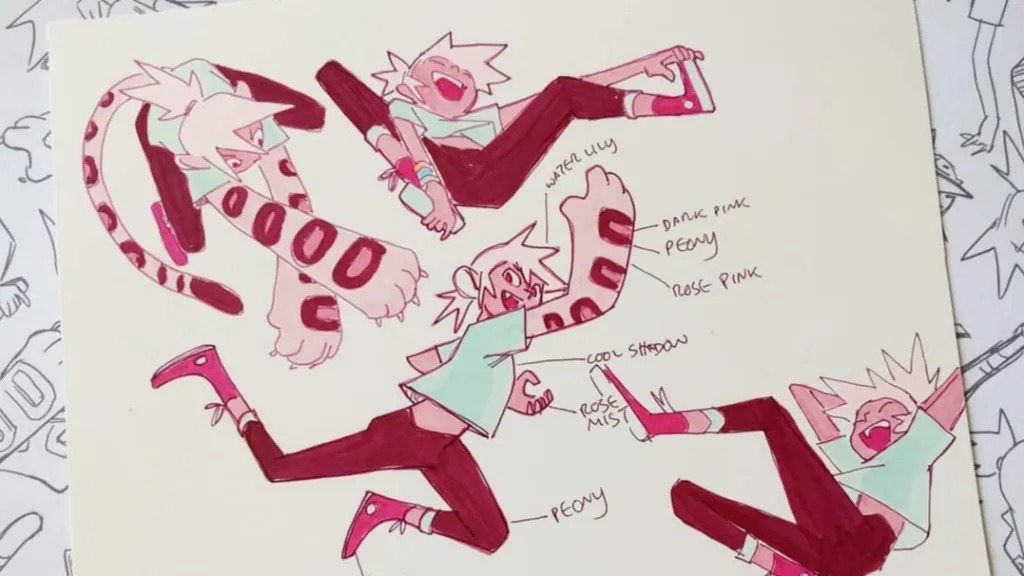 WATER LILY
DARK PINK
PEONY
ROSE PINK
COOL SHADOW
ROSE
MIST
PEONY